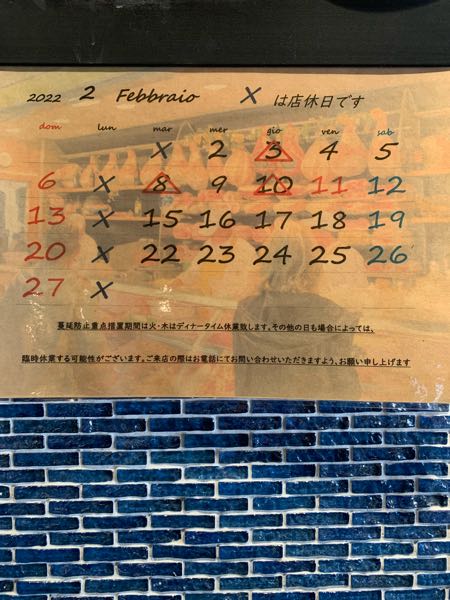 2022 2 Febbraio X は店休日です
dom lun mar mer gio ven sab
X 2 3 4 5
6 X 8 9 10 11 12
13 X 15 16 17 18 19
20 X 22 23 24 25 26
27 X
蔓延防止重点措置期間は火・木はディナータイム休業致します。その他の日も場合によっては、
臨時休業する可能性がございます。ご来店の際はお電話にてお問い合わせいただきますよう、お願い申し上げます